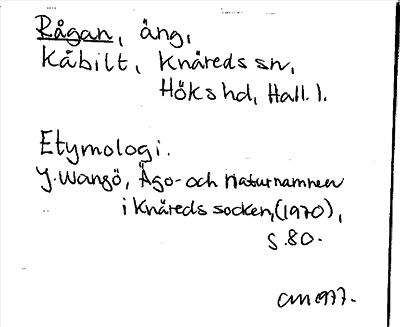 Rågan, äng,
Kåbilt, Knäreds sn,
Höks hd, Hall. l.
Etymologi.
J. Wangö, Ägo- och Naturnamnen
i Knäreds socken, (1970),
s. 80.